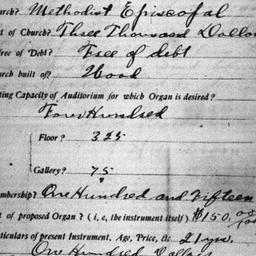 urch? Methodist Episcopal
t of Church? Three Thousand Dollar
free of Debt? Free of debt
urch built of? Wood
ting Capacity of Auditorium for which Organ is desired?
Four Hundred
Floor? 325
Gallery? 75
mbership? One Hundred and Fifteen
t of proposed Organ? (i, e, the instrument itself) $150.00
ticulars of present Instrument, Age, Price, etc. 21 yrs,
One Hundred Dollars